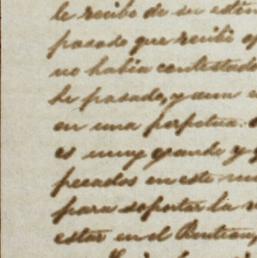 le recibo de su estim
pasado que recibi
no habia contestado
he pasado, y aun
en una perpetua
es muy grande y
pecados en este mu
para soportar la
estar en el